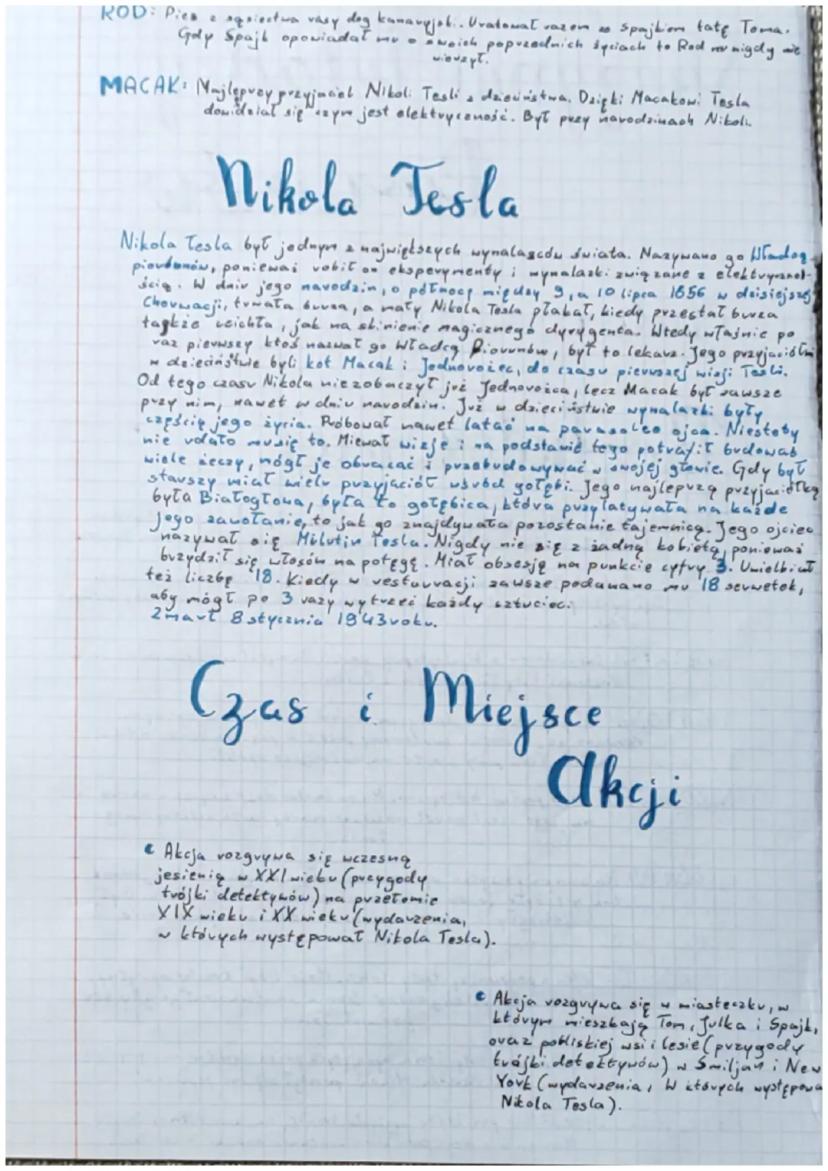 ROD: Pies z sąsiectwa rasy dog kanaryjski. Uratował razem ze Spajkiem tatę Toma.
Gdy Spajk opowiadał mu o swoich poprzednich życiach to Rod mu nigdy nie
wierzył.
MACAK: Najlepszy przyjaciel Nikoli Tesli z dzieciństwa. Dzięki Macakowi Tesla
dowiedział się czym jest elektryczność. Był przy narodzinach Nikoli.
Nikola Tesla
Nikola Tesla był jednym z największych wynalazców świata. Nazywano go Władcą
piorunów, ponieważ robił on eksperymenty i wynalazki związane z elektryczno-
ścią. W dniu jego narodzin, o północy między 9, a 10 lipca 1856 w dzisiejszej
Chorwacji, trwała burza, a mały Nikola Tesla płakał, kiedy przestał burza
także ucichła, jak na skinienie magicznego dyrygenta. Wtedy właśnie po
raz pierwszy ktoś nazwał go Władcą Piorunów, był to lekarz. Jego przyjaciółmi
w dzieciństwie byli kot Macak i Jednorożec, do czasu pierwszej wizji Tesli.
Od tego czasu Nikola nie zobaczył już Jednorożca, lecz Macak był zawsze
przy nim, nawet w dniu narodzin. Już w dzieciństwie wynalazki były
częścią jego życia. Próbował nawet latać na parasolce ojca. Niestety
nie udało mu się to. Miewał wizje i na podstawie tego potrafił budować
wiele rzeczy, mógł je obracać i przebudowywać w swojej głowie. Gdy był
starszy miał wielu przyjaciół wśród gołębi. Jego najlepszą przyjaciółką
była Białogłowa, była to gołębica, która przylatywała na każde
jego zawołanie, to jak go znajdywała pozostanie tajemnicą. Jego ojciec
nazywał się Milutin Tesla. Nigdy nie się z żadną kobietą, ponieważ
brzydził się włosów na potęgę. Miał obsesję na punkcie cyfry 3. Uwielbiał
też liczbę 18. Kiedy w restauracji zawsze podawano mu 18 serwetek,
aby mógł po 3 razy wytrzeć każdy sztuciec.
Zmarł 8 stycznia 1943 roku.
Czas i Miejsce
Akcji
Akcja rozgrywa się wczesną
jesienią w XXI wieku (przygody
trójki detektywów) na przełomie
XIX wieku i XX wieku (wydarzenia,
w których występował Nikola Tesla).
Akcja rozgrywa się w miasteczku, w
którym mieszkają Tom, Julka i Spajk,
oraz pobliskiej wsi i lesie (przygody
trójki detektywów) w Smiljan i New
York (wydarzenia, w których występowa
Nikola Tesla).